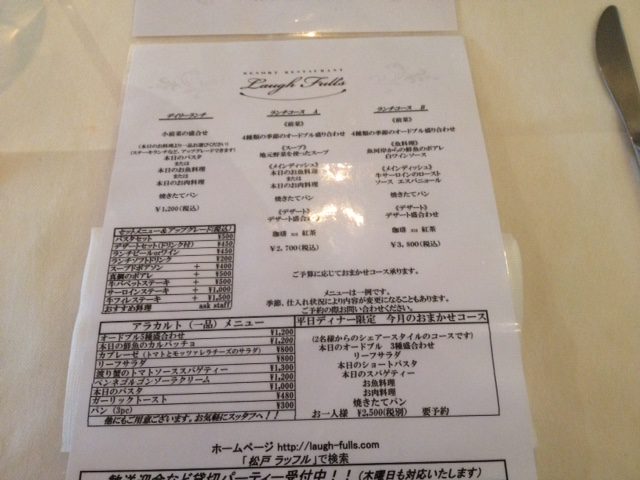 RESORT RESTAURANT
Laugh Fulls
デイリーランチ
小前菜の盛合せ
(本日のお料理より一品お選びください)
(ステーキランチなど、アップグレードできます)
本日のパスタ
または
本日のお魚料理
または
本日のお肉料理
焼きたてパン
¥1,200(税込)
ランチコース A
《前菜》
4種類の季節のオードブル盛り合わせ
《スープ》
地元野菜を使ったスープ
《メインディッシュ》
本日のお魚料理
または
本日のお肉料理
焼きたてパン
《デザート》
デザート盛合わせ
珈琲 又は 紅茶
¥2,700(税込)
ランチコース B
《前菜》
4種類の季節のオードブル盛り合わせ
《魚料理》
魚河岸からの鮮魚のポアレ
白ワインソース
《メインディッシュ》
牛サーロインのロースト
ソース エスパニョール
焼きたてパン
《デザート》
デザート盛合わせ
珈琲 又は 紅茶
¥3,800(税込)
セットメニュー&アップグレード(税込)
パスタセット ¥500
デザートセット(ドリンク付) ¥450
ランチビールorワイン ¥450
ランチソフトドリンク ¥200
スープドポアソン + ¥400
真鯛のポアレ + ¥500
牛ハベットステーキ + ¥500
サーロインステーキ + ¥1,000
牛フィレステーキ + ¥1,500
おすすめ料理 ask staff
ご予算に応じておまかせコース承ります。
メニューは一例です。
季節、仕入れ状況により内容が変更になることもあります。
ご予約の際お問い合わせください。
アラカルト(一品)メニュー
オードブル5種盛合わせ ¥1,200
本日の鮮魚のカルパッチョ ¥1,200
カプレーゼ(トマトとモッツァレラチーズのサラダ) ¥800
リーフサラダ ¥800
渡り蟹のトマトソーススパゲティー ¥1,300
ペンネゴルゴンゾーラクリーム ¥1,200
本日のパスタ ¥1,000
ガーリックトースト ¥480
パン(3pc) ¥300
他にもご用意ございます。お気軽にスッタフへ!!
平日ディナー限定 今月のおまかせコース
(2名様からのシェアースタイルのコースです)
本日のオードブル 3種盛合わせ
リーフサラダ
本日のショートパスタ
本日のスパゲティー
お魚料理
お肉料理
焼きたてパン
お一人様 ¥2,500(税別) 要予約
ホームページ http://laugh-fulls.com
「松戸 ラッフル」で検索
歓送迎会など貸切パーティー受付中!!(木曜日も対応いたします)